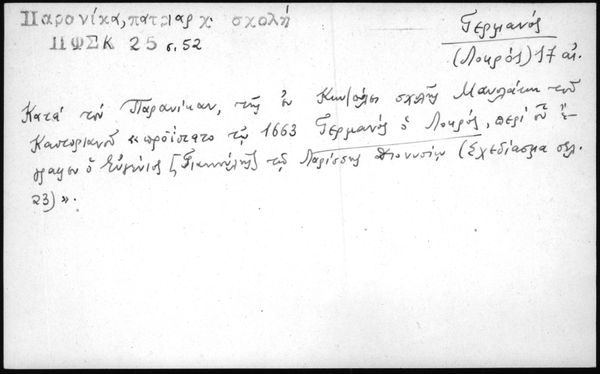 Παρονίκα, πατριαρχ. σχολή
ΠΦΣΚ 25 σ. 52
Γερμανός
(Λοκρός) 17 αι.
Κατά τόν Παρανίκαν, τῆς ἐν Κων/πόλει σχολῆς Μανολάκη τοῦ
Καστοριανοῦ «προΐστατο τῷ 1663 Γερμανός ὁ Λοκρός, περί οὗ ἔ-
γραψεν ὁ Εὐγένιος [Γιαννούλης] τῷ Λαρίσσης Διονυσίῳ (Σχεδίασμα σελ.
23)».